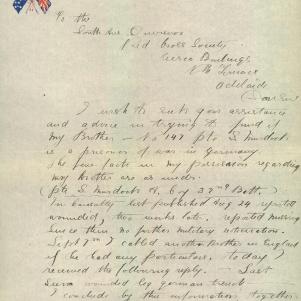 To the
South Aus.
Red Cross Society
Buildings
Nth Terrace
Adelaide
Dear Sir
I wish to seek your assistance
and advice in trying to find
my Brother - No 147 Pte S. Murdock
is a prisoner of war in Germany
The few facts in my possession regarding
my brother are as under.
(Pte S. Murdock A. Coy 37th Batt.)
In casualty list published Aug 24 reported
wounded, two weeks late. reported missing
Since then no further military intimation.
Sept 7th I cabled another brother in England
if he had any particulars. Today I
received the following reply. - Last
seen wounded leg German trench.
I conclude by this information together